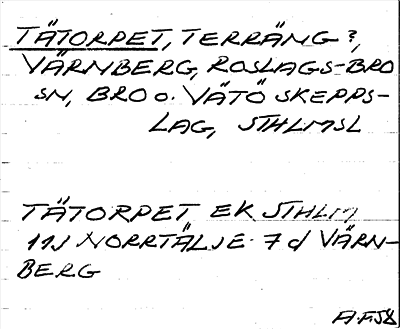 TÄTORPET, TERRÄNG?,
VÄRNBERG, ROSLAGS-BRO
SN, BRO o. VÄTÖ SKEPPS-
LAG, STHLMSL
TÄTORPET EK STHLM
11J NORRTÄLJE 7 d VÄRN-
BERG
A.F.58